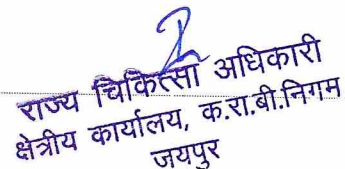 राज्य चिकित्सा अधिकारी
क्षेत्रीय कार्यालय, क.रा.बी.निगम
जयपुर